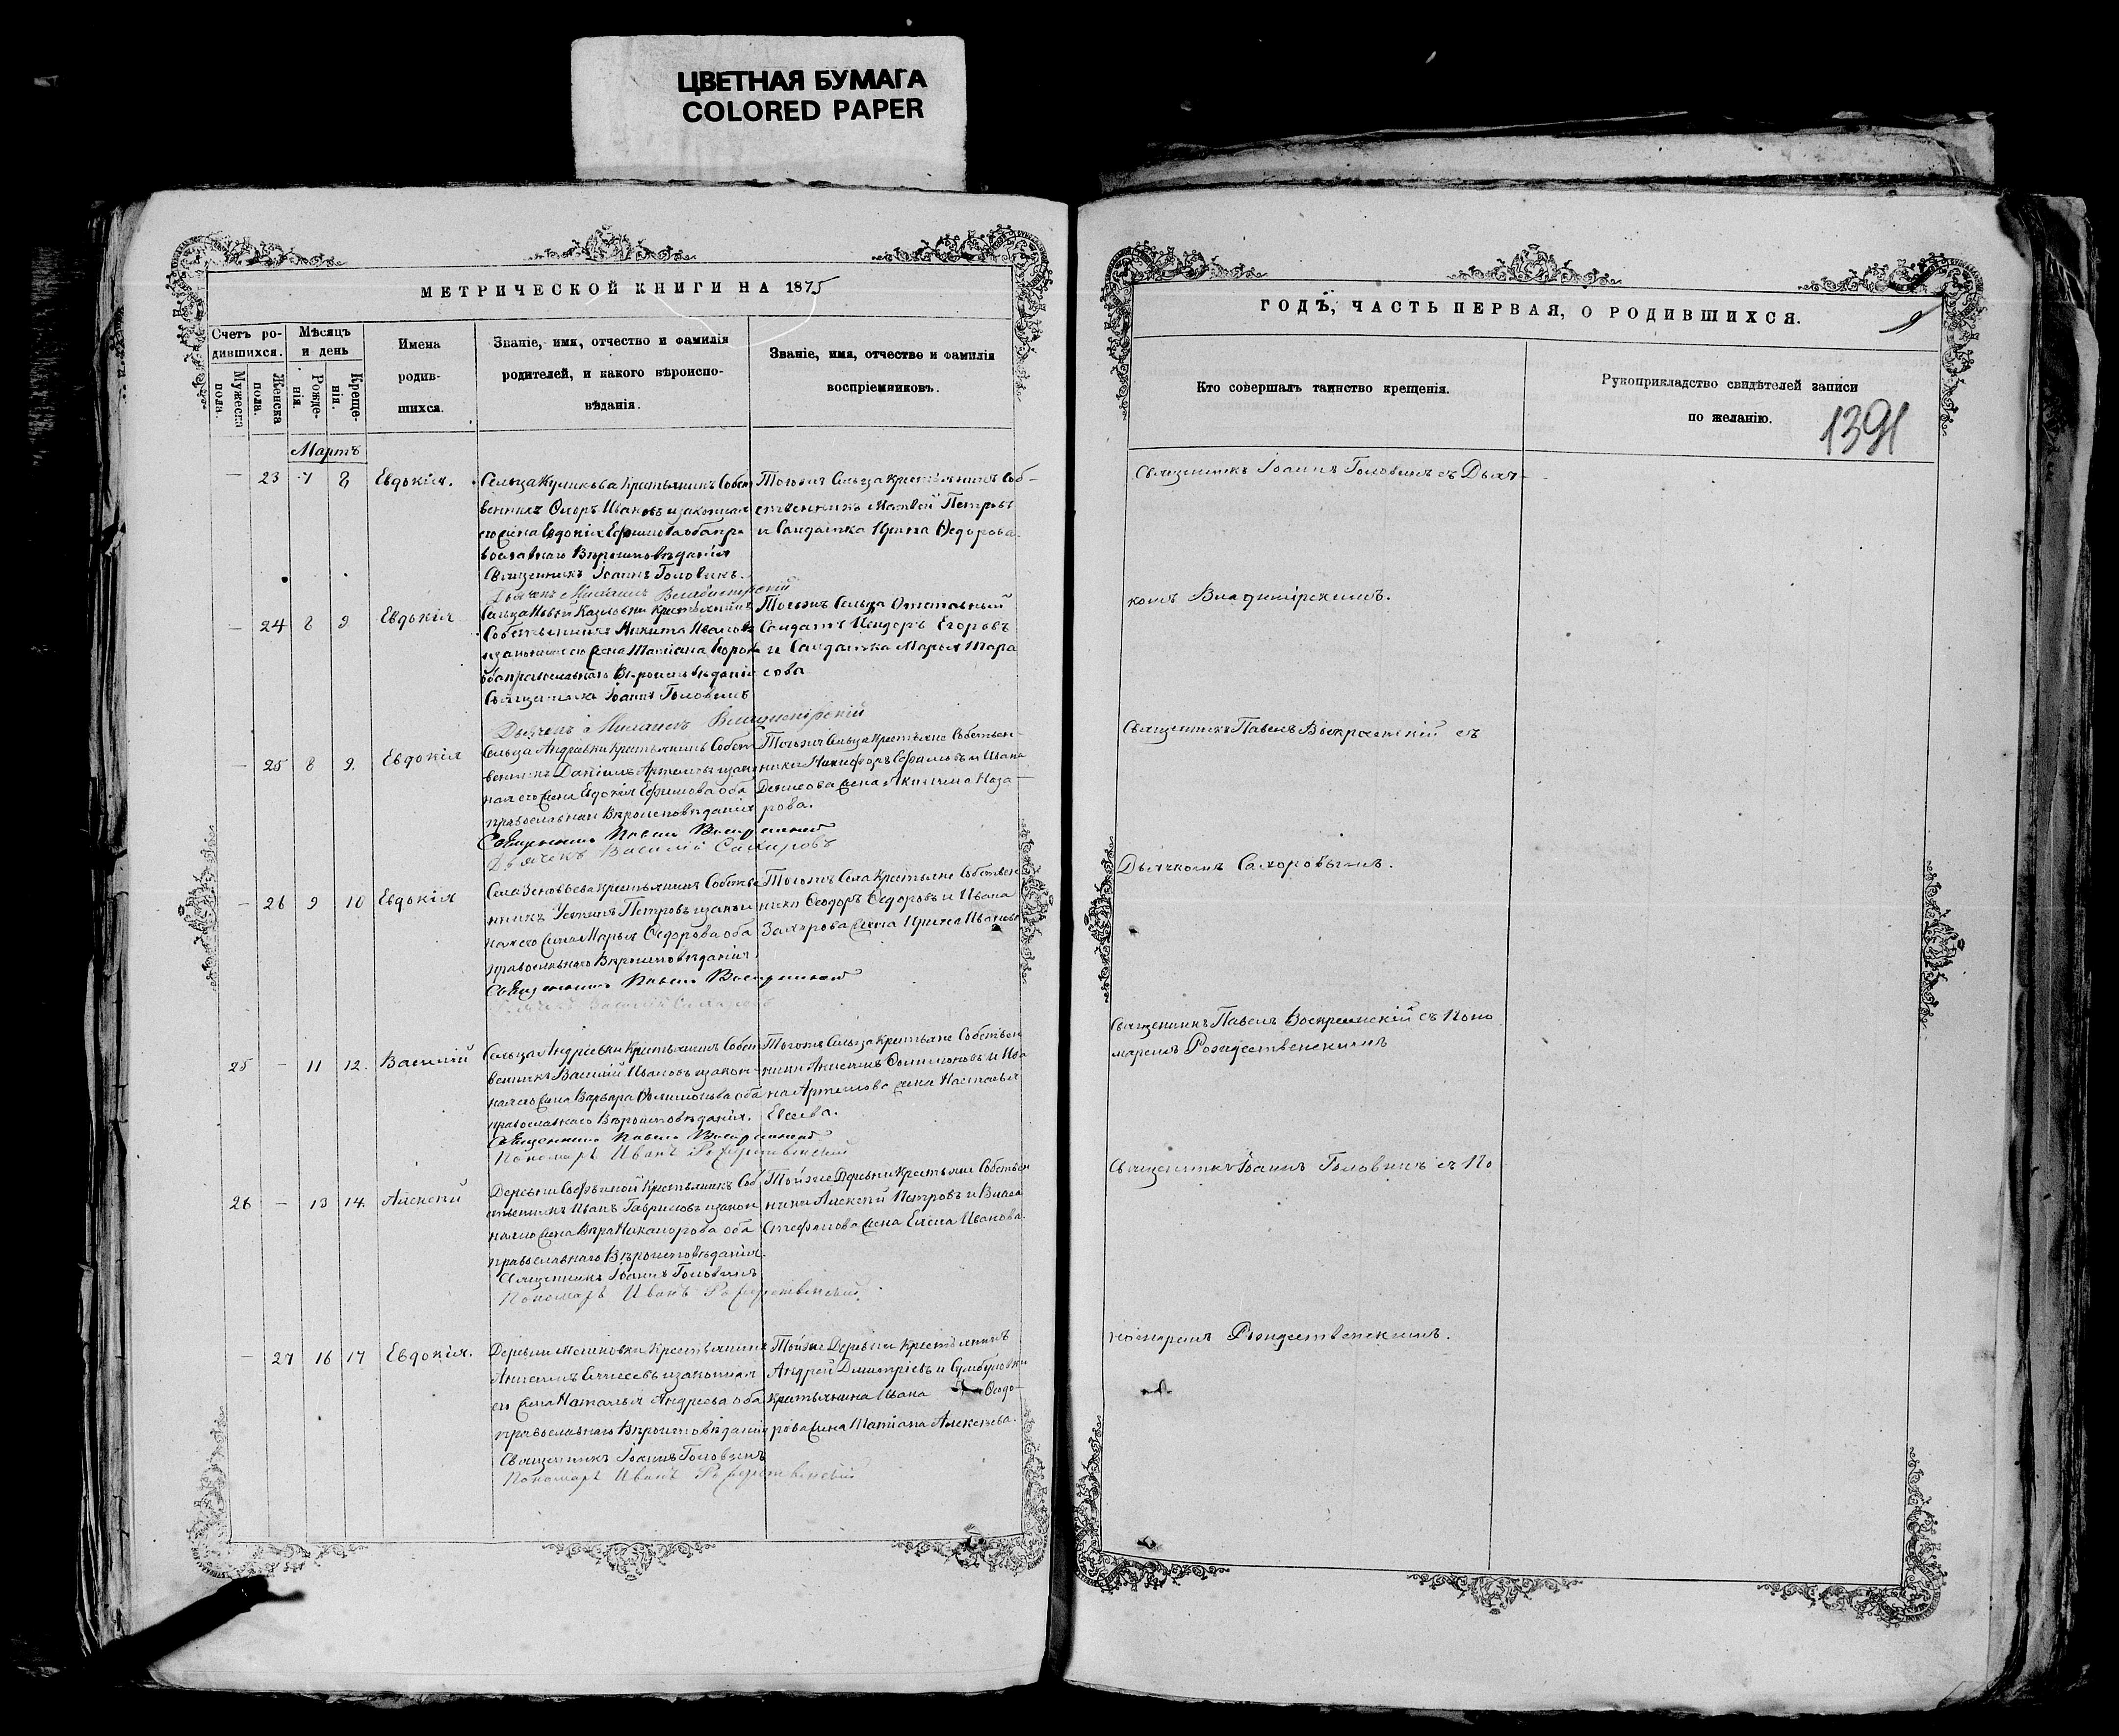 ЦВЕТНАЯ БУМАГА
COLORED PAPER
МЕТРИЧЕСКОЙ КНИГИ НА 1875
Счетъ родившихся.
Мѣсяцъ и день
Мужеска пола.
Женска пола.
Рожденія.
Крещенія.
Имена родившихся.
Званіе, имя, отчество и фамилія
родителей, и какого вѣроиспо-
вѣданія.
Званіе, имя, отчество и фамилія
воспріемниковъ.
Мартъ
— 23 7 8 Евдокія.
Сельца Куликова Крестьянинъ Собст
венникъ Ѳеоръ Ивановъ и законная
его жена Евдокія Ефимова оба пра
вославнаго Вѣроисповѣданія
Священникъ Іоаннъ Головинъ.
Дьячекъ Михаилъ Владимірскій
Тогожъ Сельца Крестьянинъ Соб-
ственникъ Матвей Петровъ
и Солдатка Ирина Ѳедорова.
— 24 8 9 Евдокія
Крестьянинъ
Собственникъ Никита Ивановъ
и законная его жена Татіана
оба православнаго Вѣроисповѣданія
Священникъ Іоаннъ Головинъ
Дьячекъ Михаилъ Владимірскій
Тогожъ Сельца Отставный
Солдатъ Исидоръ Егоровъ
и Солдатка Марья Тара
сова
— 25 8 9. Евдокія
Сельца Андревки Крестьянинъ Собст
венникъ Даніилъ Артемьевъ и закон
ная его жена Евдокія Ефимова оба
православнаго Вѣроисповѣданія
Священникъ Павелъ Воскресенскій
Дьячекъ Василій Сахаровъ
Тогожъ Сельца Крестьяне Собствен-
ники Никифоръ Ефимовъ и Ивана
Денисова жена Акилина Наза-
рова.
— 26 9 10 Евдокія
Села Зеновьева Крестьянинъ Собстве
нникъ Устинъ Петровъ и закон
ная его жена Марья Ѳедорова оба
православнаго Вѣроисповѣданія
Священникъ Павелъ Воскресенскій
Дьячекъ Василій Сахаровъ
Тогожъ Села Крестьяне Собствен
ники Ѳеодоръ Ѳедоровъ и Ивана
Захарова жена Ирина Иванова
25 — 11 12. Василій
Сельца Андреевки Крестьянинъ Собст
венникъ Василій Ивановъ и закон-
ная его жена Варвара Филимонова оба
православнаго Вѣроисповѣданія.
Священникъ Павелъ Воскресенскій
Пономарь Иванъ Рождественскій
Тогожъ Сельца Крестьяне Собствен
ники Анисимъ Филимоновъ и Ива
на Артемова жена Наталья
Евсеева.
26 — 13 14. Алексей
Деревни Крестьянинъ Соб
ственникъ Иванъ Гавриловъ и закон
ная его жена Вера Никанорова оба
православнаго Вѣроисповѣданія.
Священникъ Іоаннъ Головинъ
Пономарь Иванъ Рождественскій.
Той же Деревни Крестьяне Собствен
ники Алексей Петровъ и Власа
Стефанова жена Елена Иванова.
— 27 16 17 Евдокія.
Деревни Крестьянинъ
Анисимъ Елисеевъ и законная
его жена Наталья Андреева оба
православнаго Вѣроисповѣданія
Священникъ Іоаннъ Головинъ
Пономарь Иванъ Рождественскій
Той же Деревни Крестьянинъ
Андрей Димитріевъ и
Крестьянина Ивана Ѳедо-
рова жена Татіана Алексеева.
ГОДЪ, ЧАСТЬ ПЕРВАЯ, О РОДИВШИХСЯ.
9
Кто совершалъ таинство крещенія.
Рукоприкладство свидѣтелей записи
по желанію.
1391
Священникъ Іоаннъ Головинъ съ Дьяч-
комъ Владимірскимъ.
Священникъ Павелъ Воскресенскій съ
Дьячкомъ Сахоровымъ.
Священникъ Павелъ Воскресенскій съ Поно
маремъ Рождественскимъ
Священникъ Іоаннъ Головинъ съ По
номаремъ Рождественскимъ.